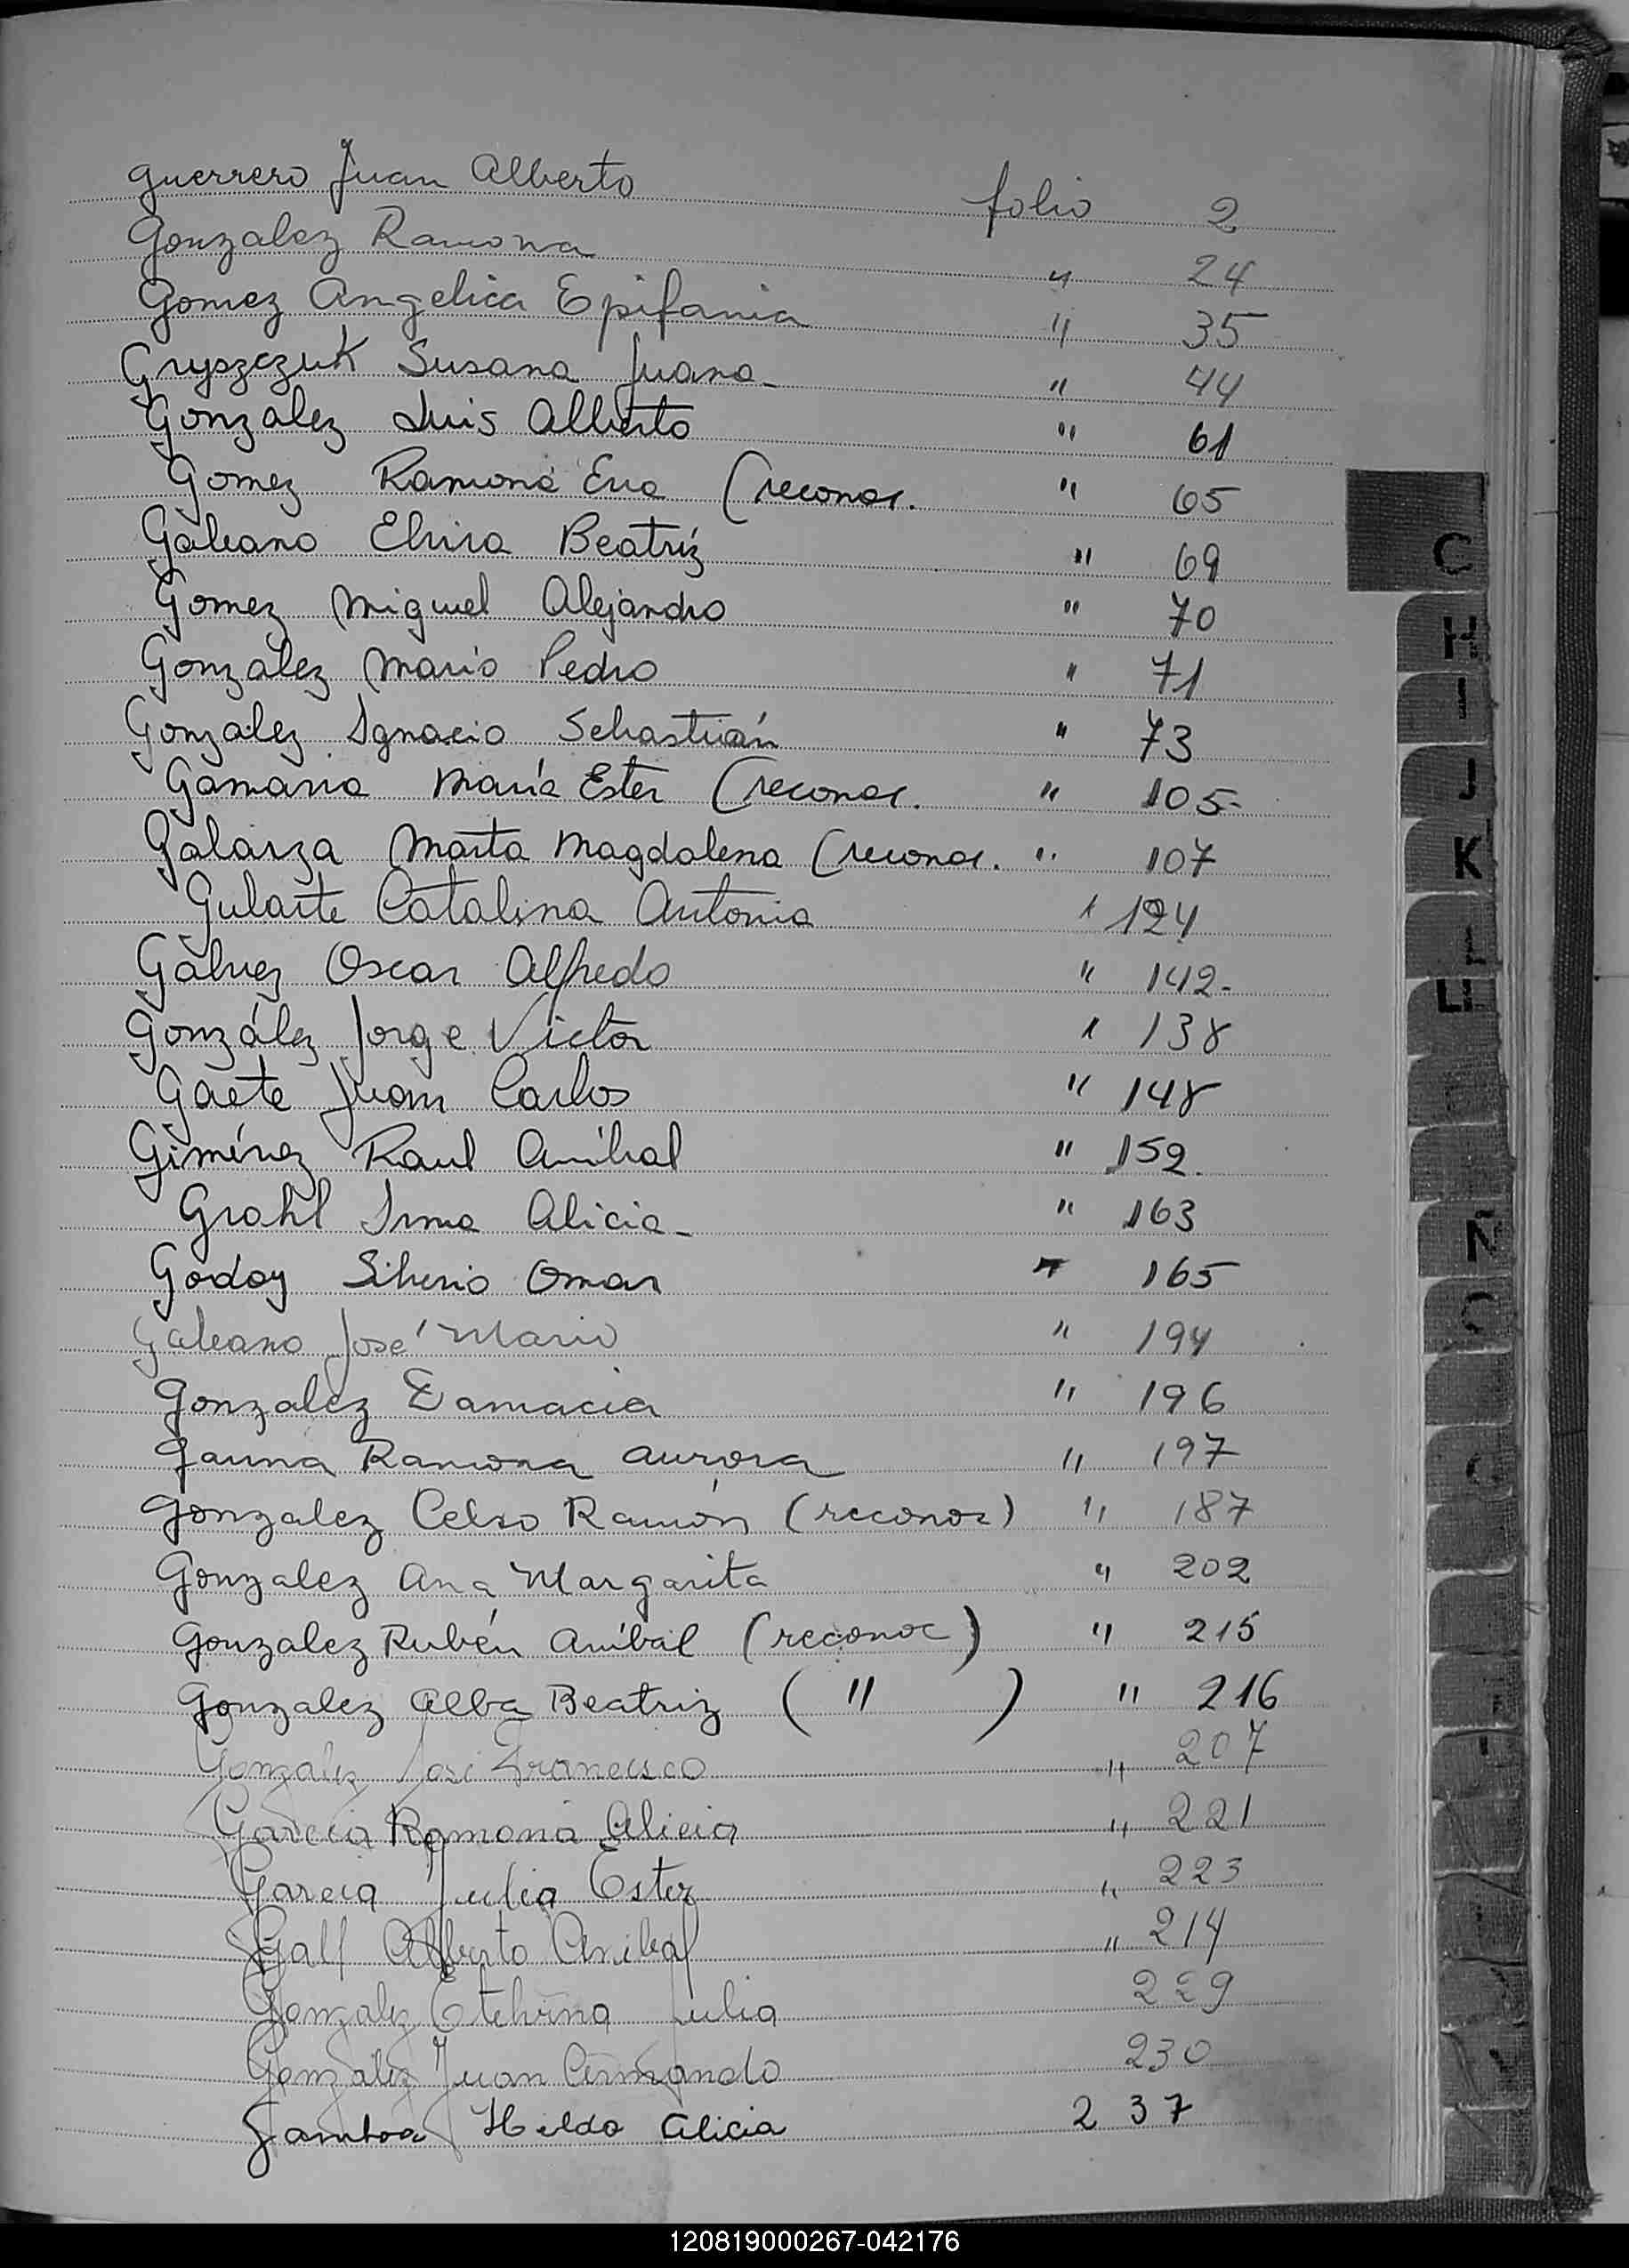 Guerrero Juan Alberto folio 2
Gonzalez Ramona " 24
Gomez Angelica Epifania " 35
Gryszczuk Susana Juana- " 44
Gonzalez Luis Alberto " 61
Gomez Ramona Eva (reconoc. " 65
Galeano Elvira Beatríz " 69
Gomez Miguel Alejandro " 70
Gonzalez Mario Pedro " 71
Gonzalez Ignacio Sebastián " 73
Gamarra María Ester (reconoc. " 105-
Galarza Marta Magdalena (reconoc. " 107
Gularte Catalina Antonia " 124
Galvez Oscar Alfredo " 142-
González Jorge Victor " 138
Gaete Juan Carlos " 148
Giménez Raul Aníbal " 152.
Grahl Irma Alicia- " 163
Godoy Silverio Omar " 165
Galeano José Mario " 194
Gonzalez Damacia " 196
Gauna Ramona Aurora " 197
Gonzalez Celso Ramón (reconoc) " 187
Gonzalez Ana Margarita " 202
Gonzalez Rubén Aníbal (reconoc) " 215
Gonzalez Alba Beatriz ( " ) " 216
Gonzalez José Francisco " 207
Garcia Ramona Alicia " 221
Garcia Julia Ester " 223
Gall Alberto Anibal " 214
Gonzalez Etelvina Julia 229
Gonzalez Juan Armando 230
Gamboa Hilda Alicia 237
C
H
I
J
K
L
LL
Ñ
O
Q
120819000267-042176